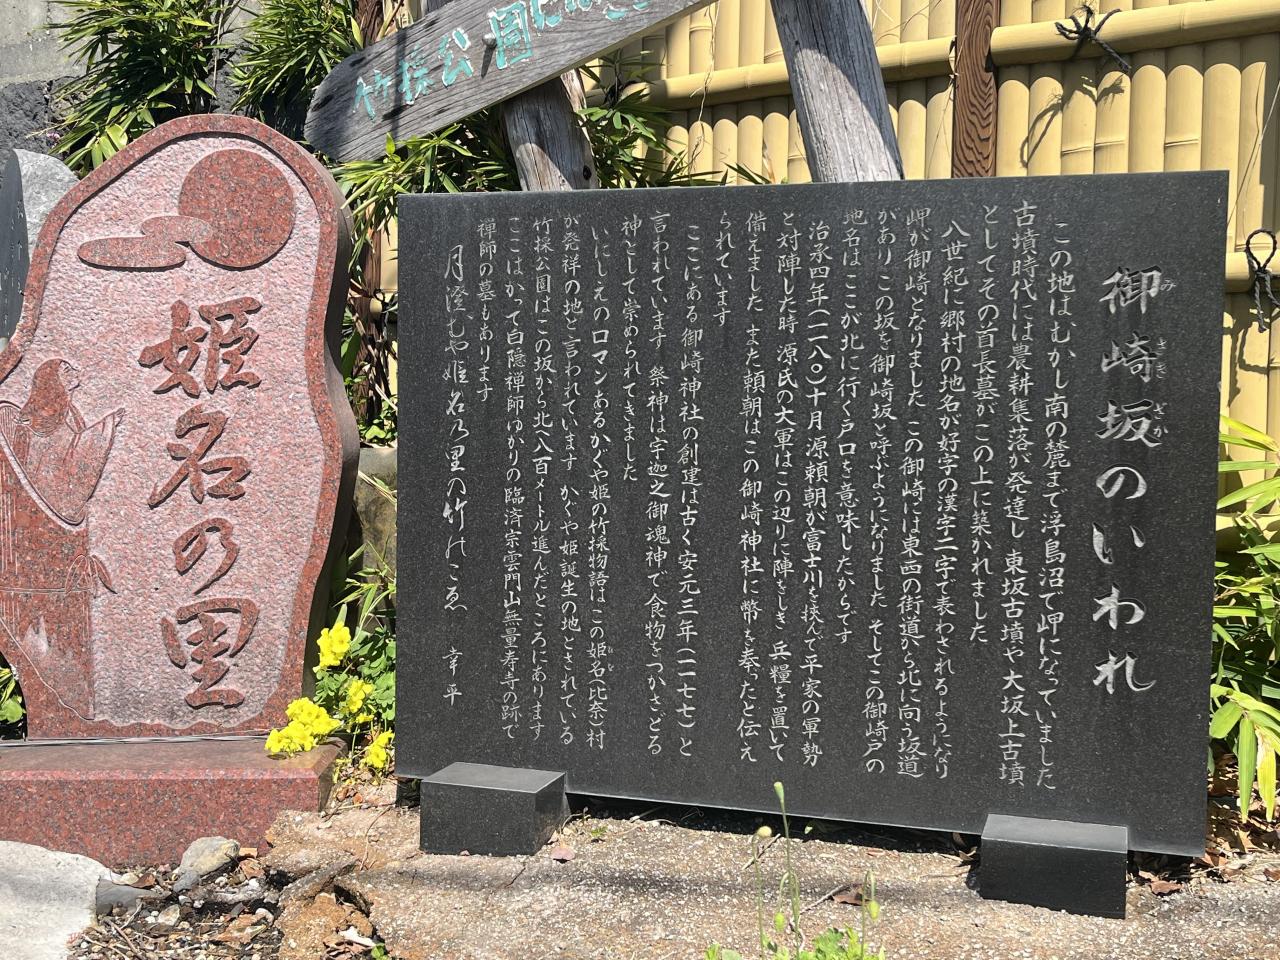 竹採公園に
姫名の里
御崎坂のいわれ
みさきざか
この地はむかし南の麓まで浮島沼で岬になっていました
古墳時代には農耕集落が発達し 東坂古墳や大坂上古墳
としてその首長墓がこの上に築かれました
八世紀に郷村の地名が好字の漢字二字で表わされるようになり
岬が御崎となりました この御崎には東西の街道から北に向う坂道
があり この坂を御崎坂と呼ぶようになりました そしてこの御崎戸の
地名はここが北に行く戸口を意味したからです
治承四年(一一八〇)十月源頼朝が富士川を挟んで平家の軍勢
と対陣した時 源氏の大軍はこの辺りに陣をしき 兵糧を置いて
備えました また頼朝はこの御崎神社に幣を奉ったと伝え
られています
ここにある御崎神社の創建は古く安元三年(一一七七)と
言われています 祭神は宇迦之御魂神で食物をつかさどる
神として崇められてきました
いにしえのロマンあるかぐや姫の竹採物語はこの姫名(比奈)村
ひな
が発祥の地と言われています かぐや姫誕生の地とされている
竹採公園はこの坂から北へ八百メートル進んだところにあります
ここはかって白隠禅師ゆかりの臨済宗雲門山無量寺の跡で
禅師の墓もあります
月澄むや姫名乃里の竹のこゑ 幸平